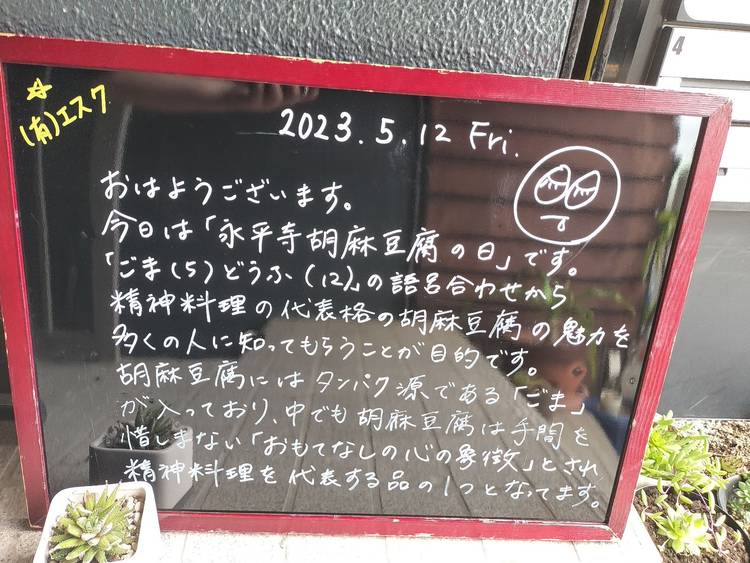 2023.5.12 Fri.
☆
(有)エスク
おはようございます。
今日は「永平寺胡麻豆腐の日」です。
「ごま(5)どうふ(12)」の語呂合わせから
精神料理の代表格の胡麻豆腐の魅力を
多くの人に知ってもらうことが目的です。
胡麻豆腐にはタンパク源である「ごま」
が入っており、中でも胡麻豆腐は手間を
惜しまない「おもてなしの心の象徴」とされ
精神料理を代表する品の1つとなってます。
4